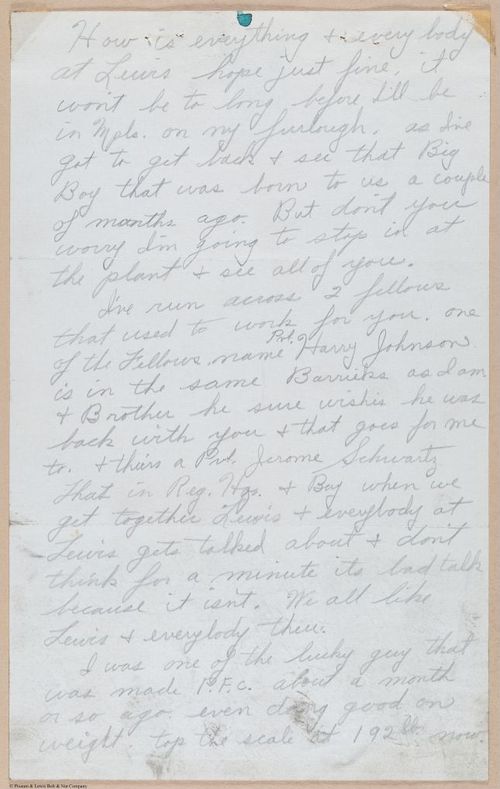 How is everything & every body
at Lewis hope just fine, it
wont be to long before I'll be
in Mpls. on my furlough, as I've
got to get back & see that Big
Boy that was born to us a couple
of months ago. But dont you
worry I'm going to stop in at
the plant & see all of you.
I've run across 2 fellows
that used to work for you. one
of the Fellows name Pvt. Harry Johnson
is in the same Barricks as I am
& Brother he sure wishis he was
back with you & that goes for me
to. & thirs a Pvt. Jerome Schwartz
that in Reg. Hqs. & Boy when we
get together Lewis & everybody at
Lewis gets talked about & don't
think for a minute its bad talk
because it isnt. We all like
Lewis & everybody there.
I was one of the lucky guy that
was made P.F.C. about a month
or so ago even doing good on
weight. top the scale at 192 lb now.
© Pioneer & Lewis Bolt & Nut Company